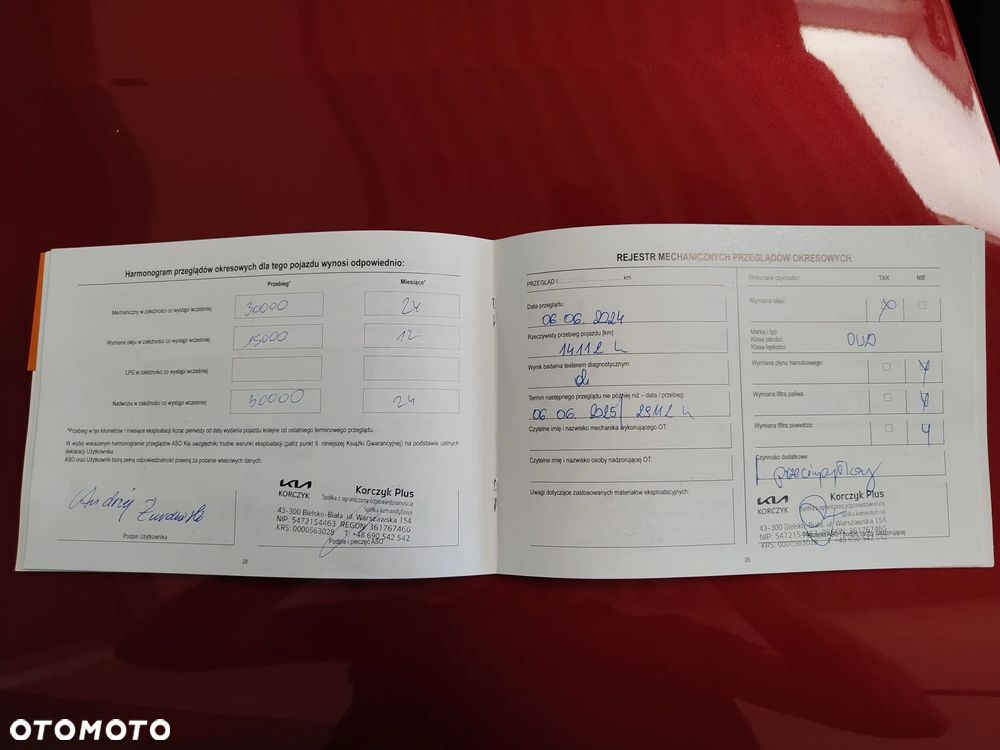 Harmonogram przeglądów okresowych dla tego pojazdu wynosi odpowiednio:
Przebieg* Miesiące*
Mechaniczny w zależności co wystąpi wcześniej: 30000 24
Wymiana oleju w zależności co wystąpi wcześniej: 15000 12
LPG w zależności co wystąpi wcześniej:
Nadwozia w zależności co wystąpi wcześniej: 30000 24
*Przebieg w tys kilometrów / miesiące eksploatacji licząc pierwszy od daty wydania pojazdu kolejne od ostatniego terminowego przeglądu.
W wyżej wskazanym harmonogramie przeglądów ASO Kia uwzględniło trudne warunki eksploatacji (patrz punkt 9. niniejszej Książki Gwarancyjnej) na podstawie ustnych
deklaracji Użytkownika.
ASO oraz Użytkownik biorą pełną odpowiedzialność prawną za podanie właściwych danych.
Andrzej
Podpis Użytkownika
KIA
KORCZYK
Korczyk Plus
Spółka z ograniczoną odpowiedzialnością
Spółka komandytowa
43-300 Bielsko-Biała ul. Warszawska 154
NIP: 5472154463 REGON: 361767466
KRS: 0000563028 T: +48 690 542 542
Podpis i pieczęć ASO
28
REJESTR MECHANICZNYCH PRZEGLĄDÓW OKRESOWYCH
PRZEGLĄD I km
Data przeglądu:
06 06. 2024
Rzeczywisty przebieg pojazdu [km]:
14112
Wynik badania testerem diagnostycznym
Termin następnego przeglądu nie później niż - data / przebieg:
06. 06. 2025 29112
Czytelne imię i nazwisko mechanika wykonującego OT:
Czytelne imię i nazwisko osoby nadzorującej OT:
Uwagi dotyczące zastosowanych materiałów eksploatacyjnych:
Wykonane czynności: TAK NIE
Wymiana oleju:
Marka i typ:
Klasa jakości:
Klasa lepkości:
Wymiana płynu hamulcowego:
Wymiana filtra paliwa:
Wymiana filtra powietrza:
Czynności dodatkowe:
KIA
KORCZYK
Korczyk Plus
Spółka z ograniczoną odpowiedzialnością
Spółka komandytowa
43-300 Bielsko-Biała ul. Warszawska 154
NIP: 5472154463 REGON: 361767466
KRS: 0000563028 T: +48 690 542 542
29
OTOMOTO